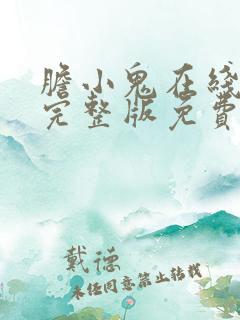 膽小鬼在綫
完整版免費
戴德
未經同意禁止轉載